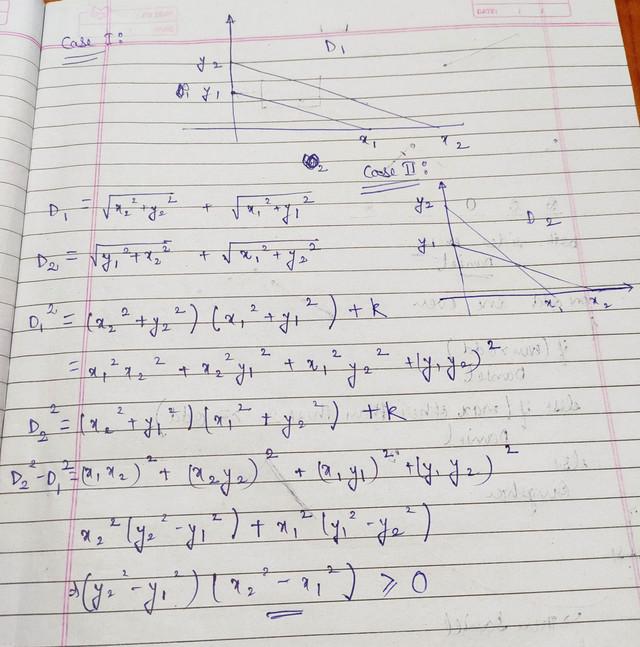 Case I:
D₁
y₂
y₁
x₁ x₂
Case II:
y₂
D₂
y₁
x₁ x₂
D₁ = √(x₂²+y₂²) + √(x₁²+y₁²)
D₂ = √(y₁²+x₂²) + √(x₁²+y₂²)
D₁² = (x₂²+y₂²) (x₁²+y₁²) + k
= x₁²x₂² + x₂²y₁² + x₁²y₂² + (y₁y₂)²
D₂² = (x₂²+y₁²) (x₁²+y₂²) + k
D₂²-D₁² = (x₁x₂)² + (x₂y₂)² + (x₁y₁)² + (y₁y₂)²
x₂²(y₂²-y₁²) + x₁²(y₁²-y₂²)
⇒ (y₂²-y₁²) (x₂²-x₁²) ⩾ 0